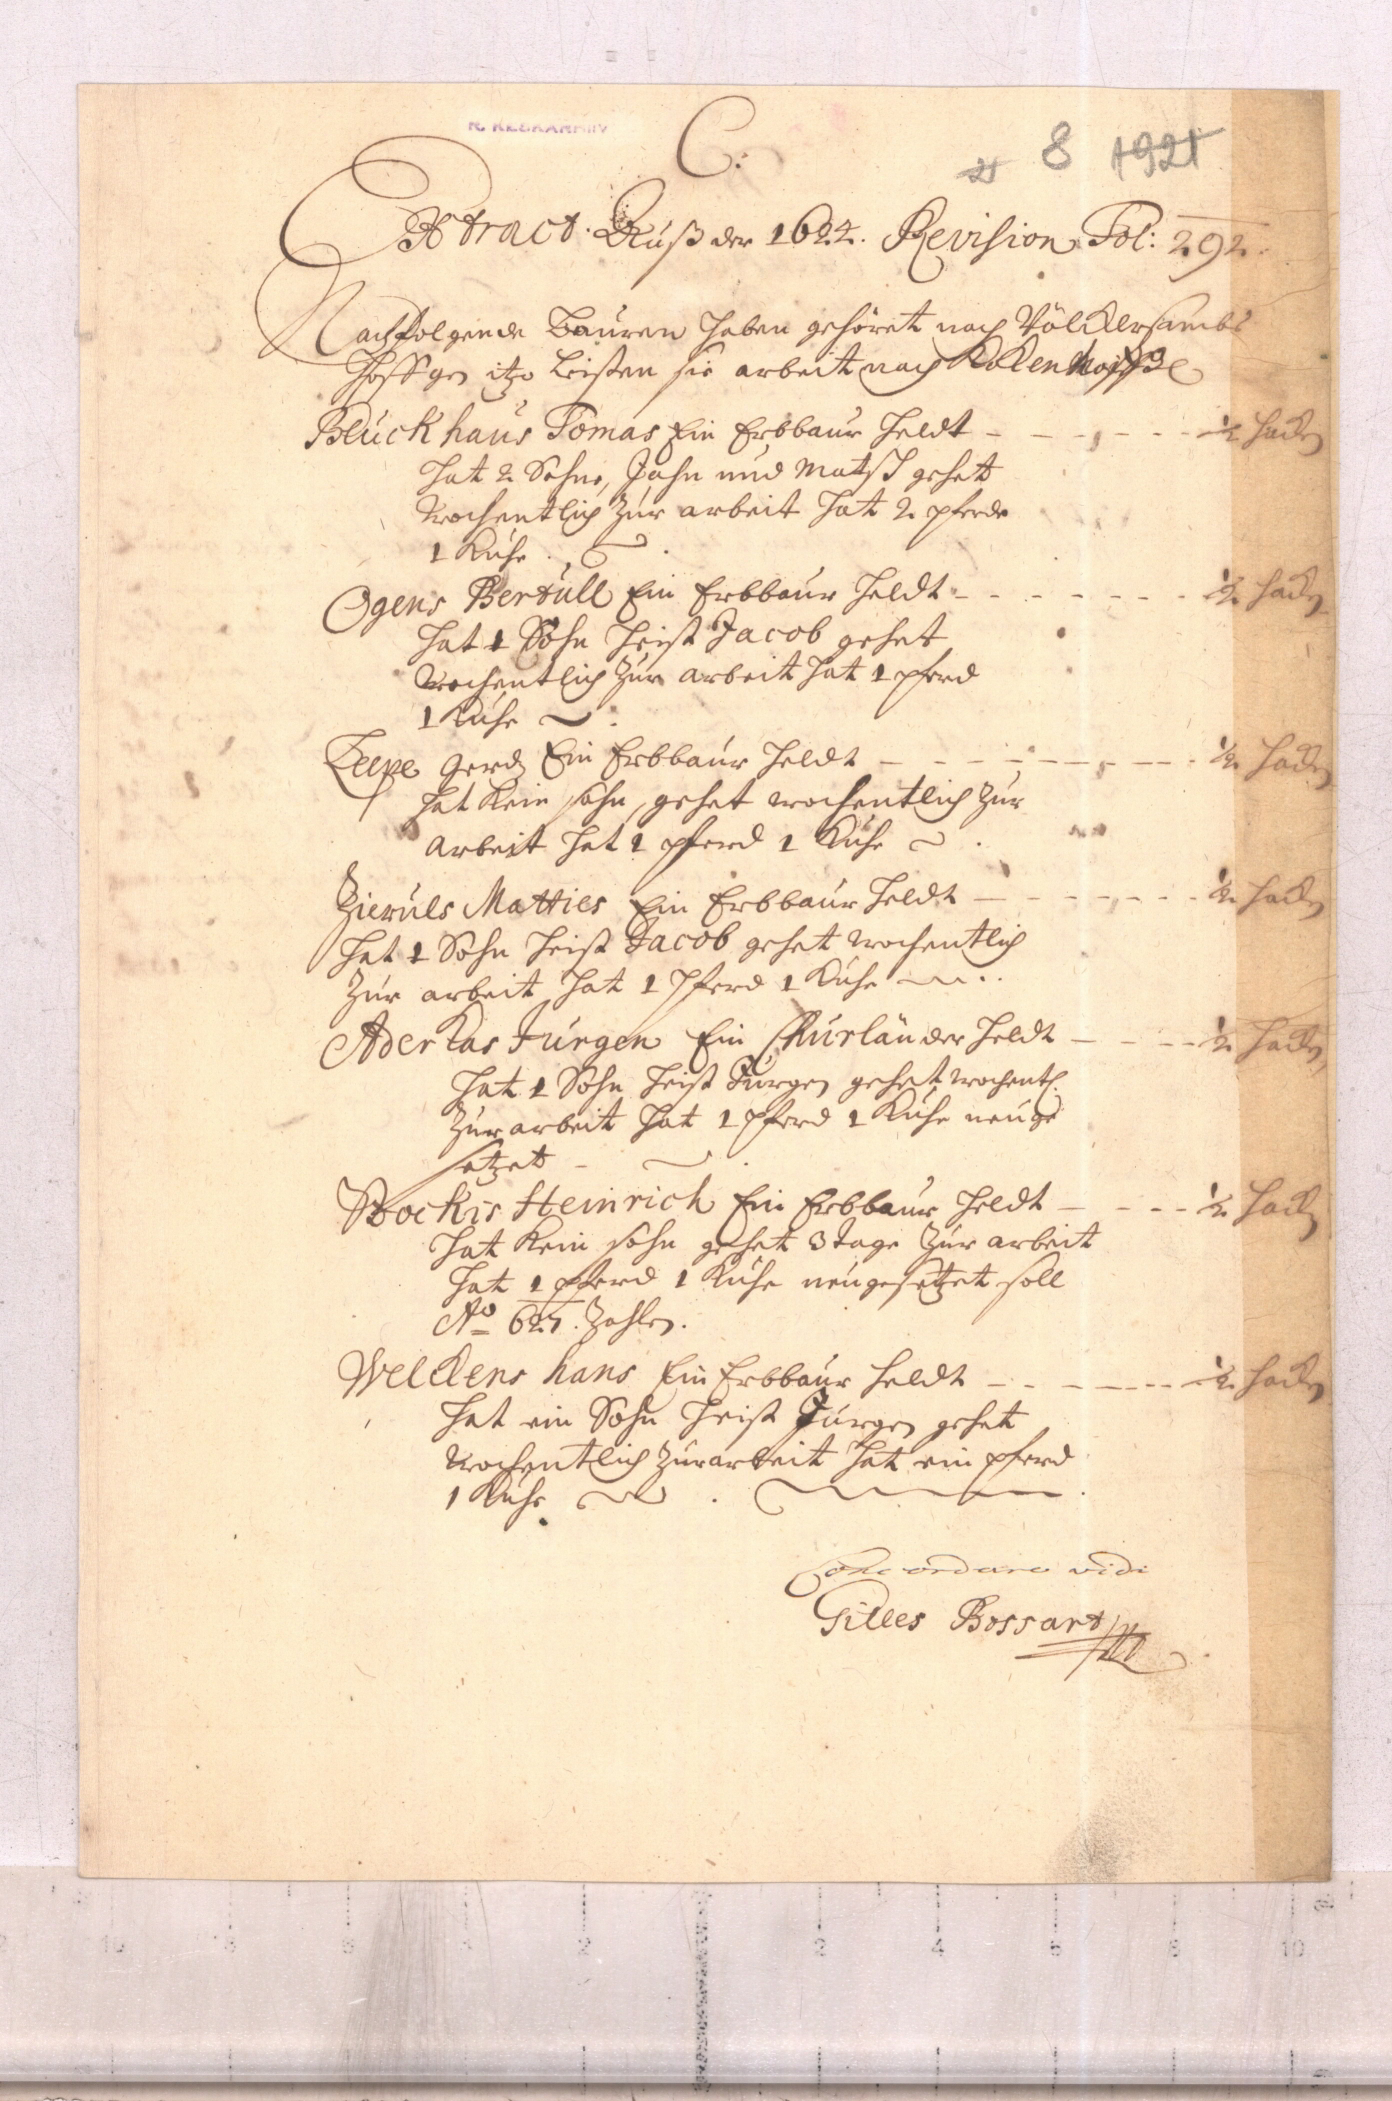 C:
8 1921
Extract Auß der 1622. Revision Fol: 292.
Nachfolgende Bauren haben gehöret nach Völckersambs
Höffgen itzo leisten sie arbeit nach Kokenhoff
Bluckhaus Tomas Ein Erbbaur heldt - - - - - - ½ hacken
hat 2 Sohne, Jahn und Matß gehet
wochentlich zur arbeit hat 2 pferde
1 Kuhe.
Ogens Bertull Ein Erbbaur heldt - - - - - - ½ hacken
hat 1 Sohn heist Jacob gehet
wochentlich zur arbeit hat 1 pferd
1 Kuhe
Leepe Gerd Ein Erbbaur heldt - - - - - - - - ½ hacken
hat kein sohn, gehet wochentlich zur
arbeit hat 1 pferd 1 Kuhe
Zieruls Matties Ein Erbbaur heldt - - - - - - ½ hacken
hat 1 Sohn heist Jacob gehet wochentlich
zur arbeit hat 1 Pferd 1 Kuhe
Aderkas Jurgen Ein Churländer heldt - - - - ½ hacken
hat 1 Sohn heist Jurgen gehet wochentl.
zur arbeit hat 1 Pferd 1 Kuhe neuge
setzet -
Stockis Heinrich Ein Erbbaur heldt - - - - ½ hacken
hat kein sohn gehet 3 tage zur arbeit
hat 1 pferd 1 Kuhe neugesetzet soll
Aº 625. zahlen.
Welckens hans Ein Erbbaur heldt - - - - - - ½ hacken
hat ein Sohn heist Jurgen gehet
wochentlich zur arbeit hat ein pferd
1 Kuhe
Concordare vidi
Gilles Bossart